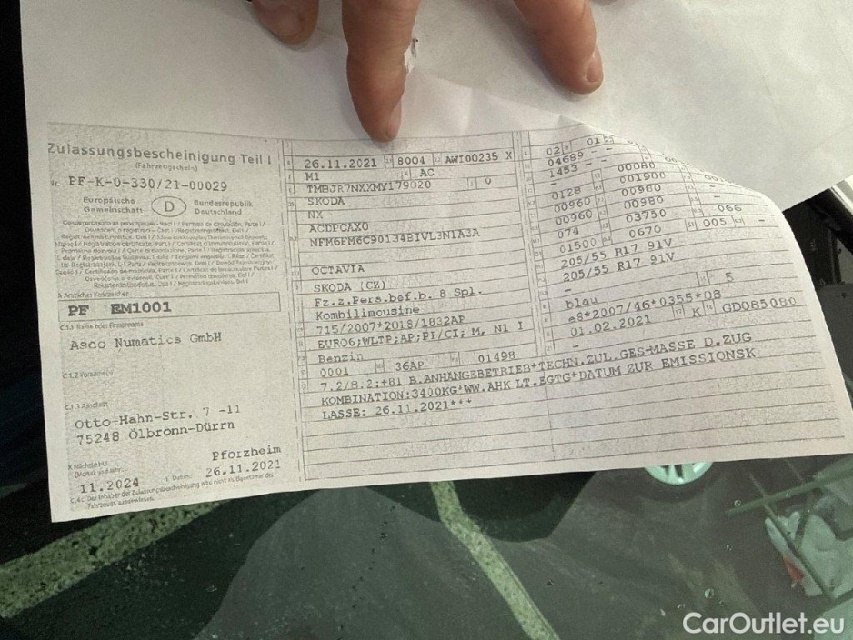 Zulassungsbescheinigung Teil I
(Fahrzeugschein)
Nr. PF-K-0-330/21-00029
Europäische Gemeinschaft D Bundesrepublik Deutschland
PF EM1001
Asco Numatics GmbH
Otto-Hahn-Str. 7 -11
75248 Ölbronn-Dürrn
Pforzheim
11.2024
26.11.2021
26.11.2021 8004 AWI00235 X
M1 AC
TMBJR7NXXMY179020 0
SKODA
NX
ACDPCAX0
NFM6FM6C90134BIVL3N1A3A
OCTAVIA
SKODA (CZ)
Fz.z.Pers.bef.b. 8 Spl.
Kombilimousine
715/2007*2018/1832AP
EURO6;WLTP;AP;PI/CI; M, N1 I
Benzin
0001 36AP 01498
02 01
04689 - -
1453 - 00080
0128 001900
00960 00980
00960 00980
074 03750 066
01500 0670 005 -
205/55 R17 91V
205/55 R17 91V
-
blau 5
e8*2007/46*0355*08
01.02.2021 K GD085080
-
7.2/8.2;+81 B.ANHÄNGEBETRIEB*TECHN.ZUL.GES-MASSE D.ZUG
KOMBINATION:3400KG*WW.AHK LT.EGTG*DATUM ZUR EMISSIONSK
LASSE: 26.11.2021***
CarOutlet.eu